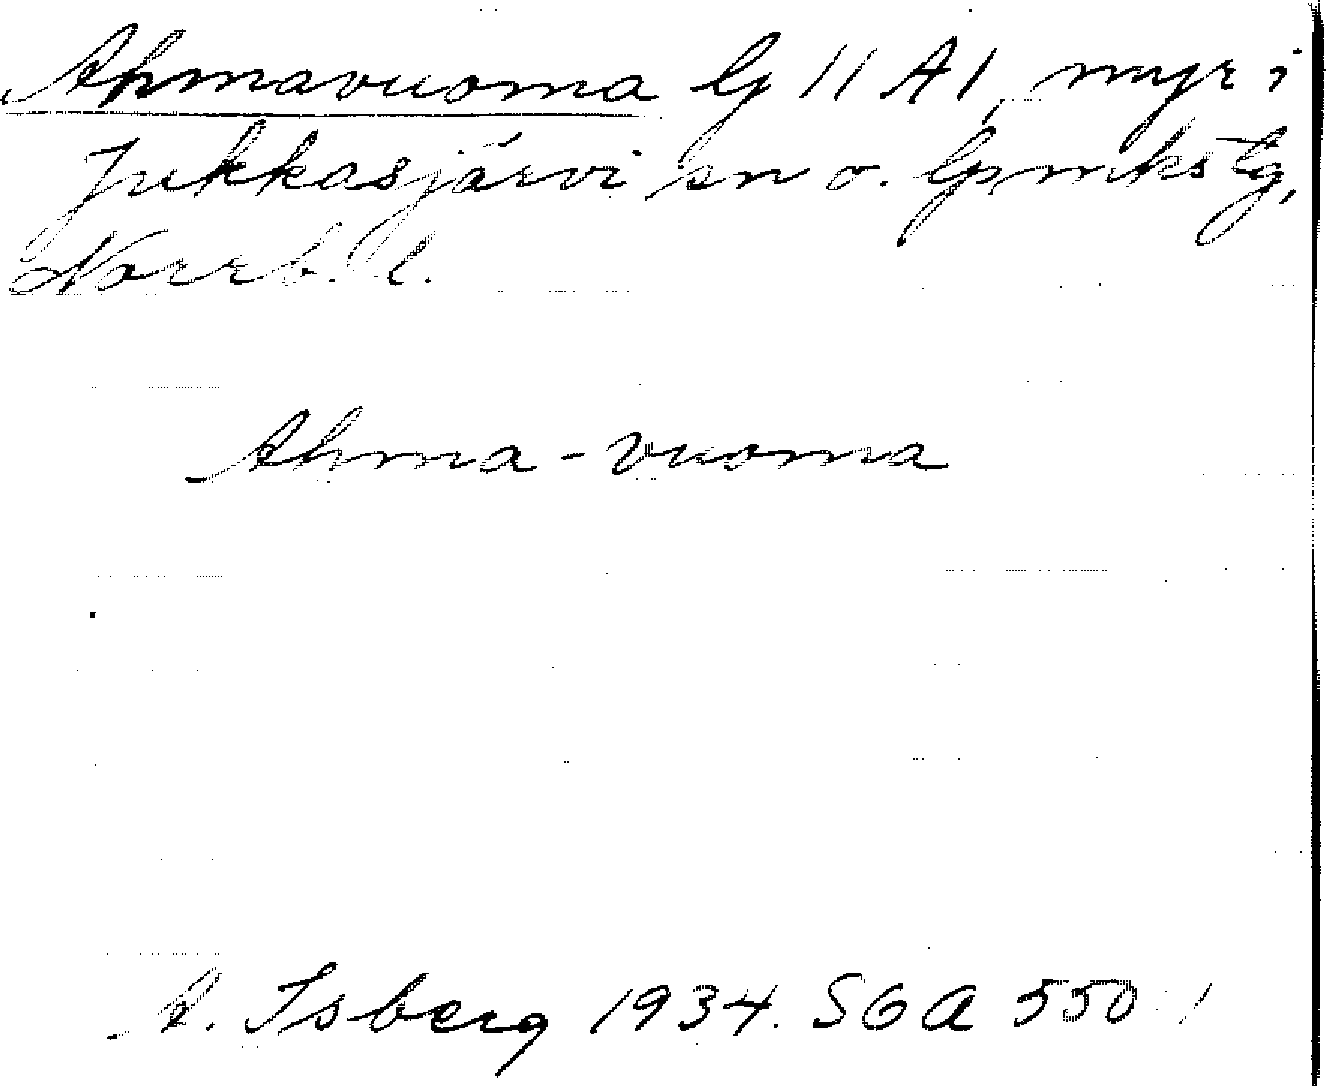 Ahmavuoma lg 11 A1, myr i
Jukkasjärvi sn o. lpmkstg,
Norrb. l.
Ahma-vuoma
A. Isberg 1934. SOA 550:1